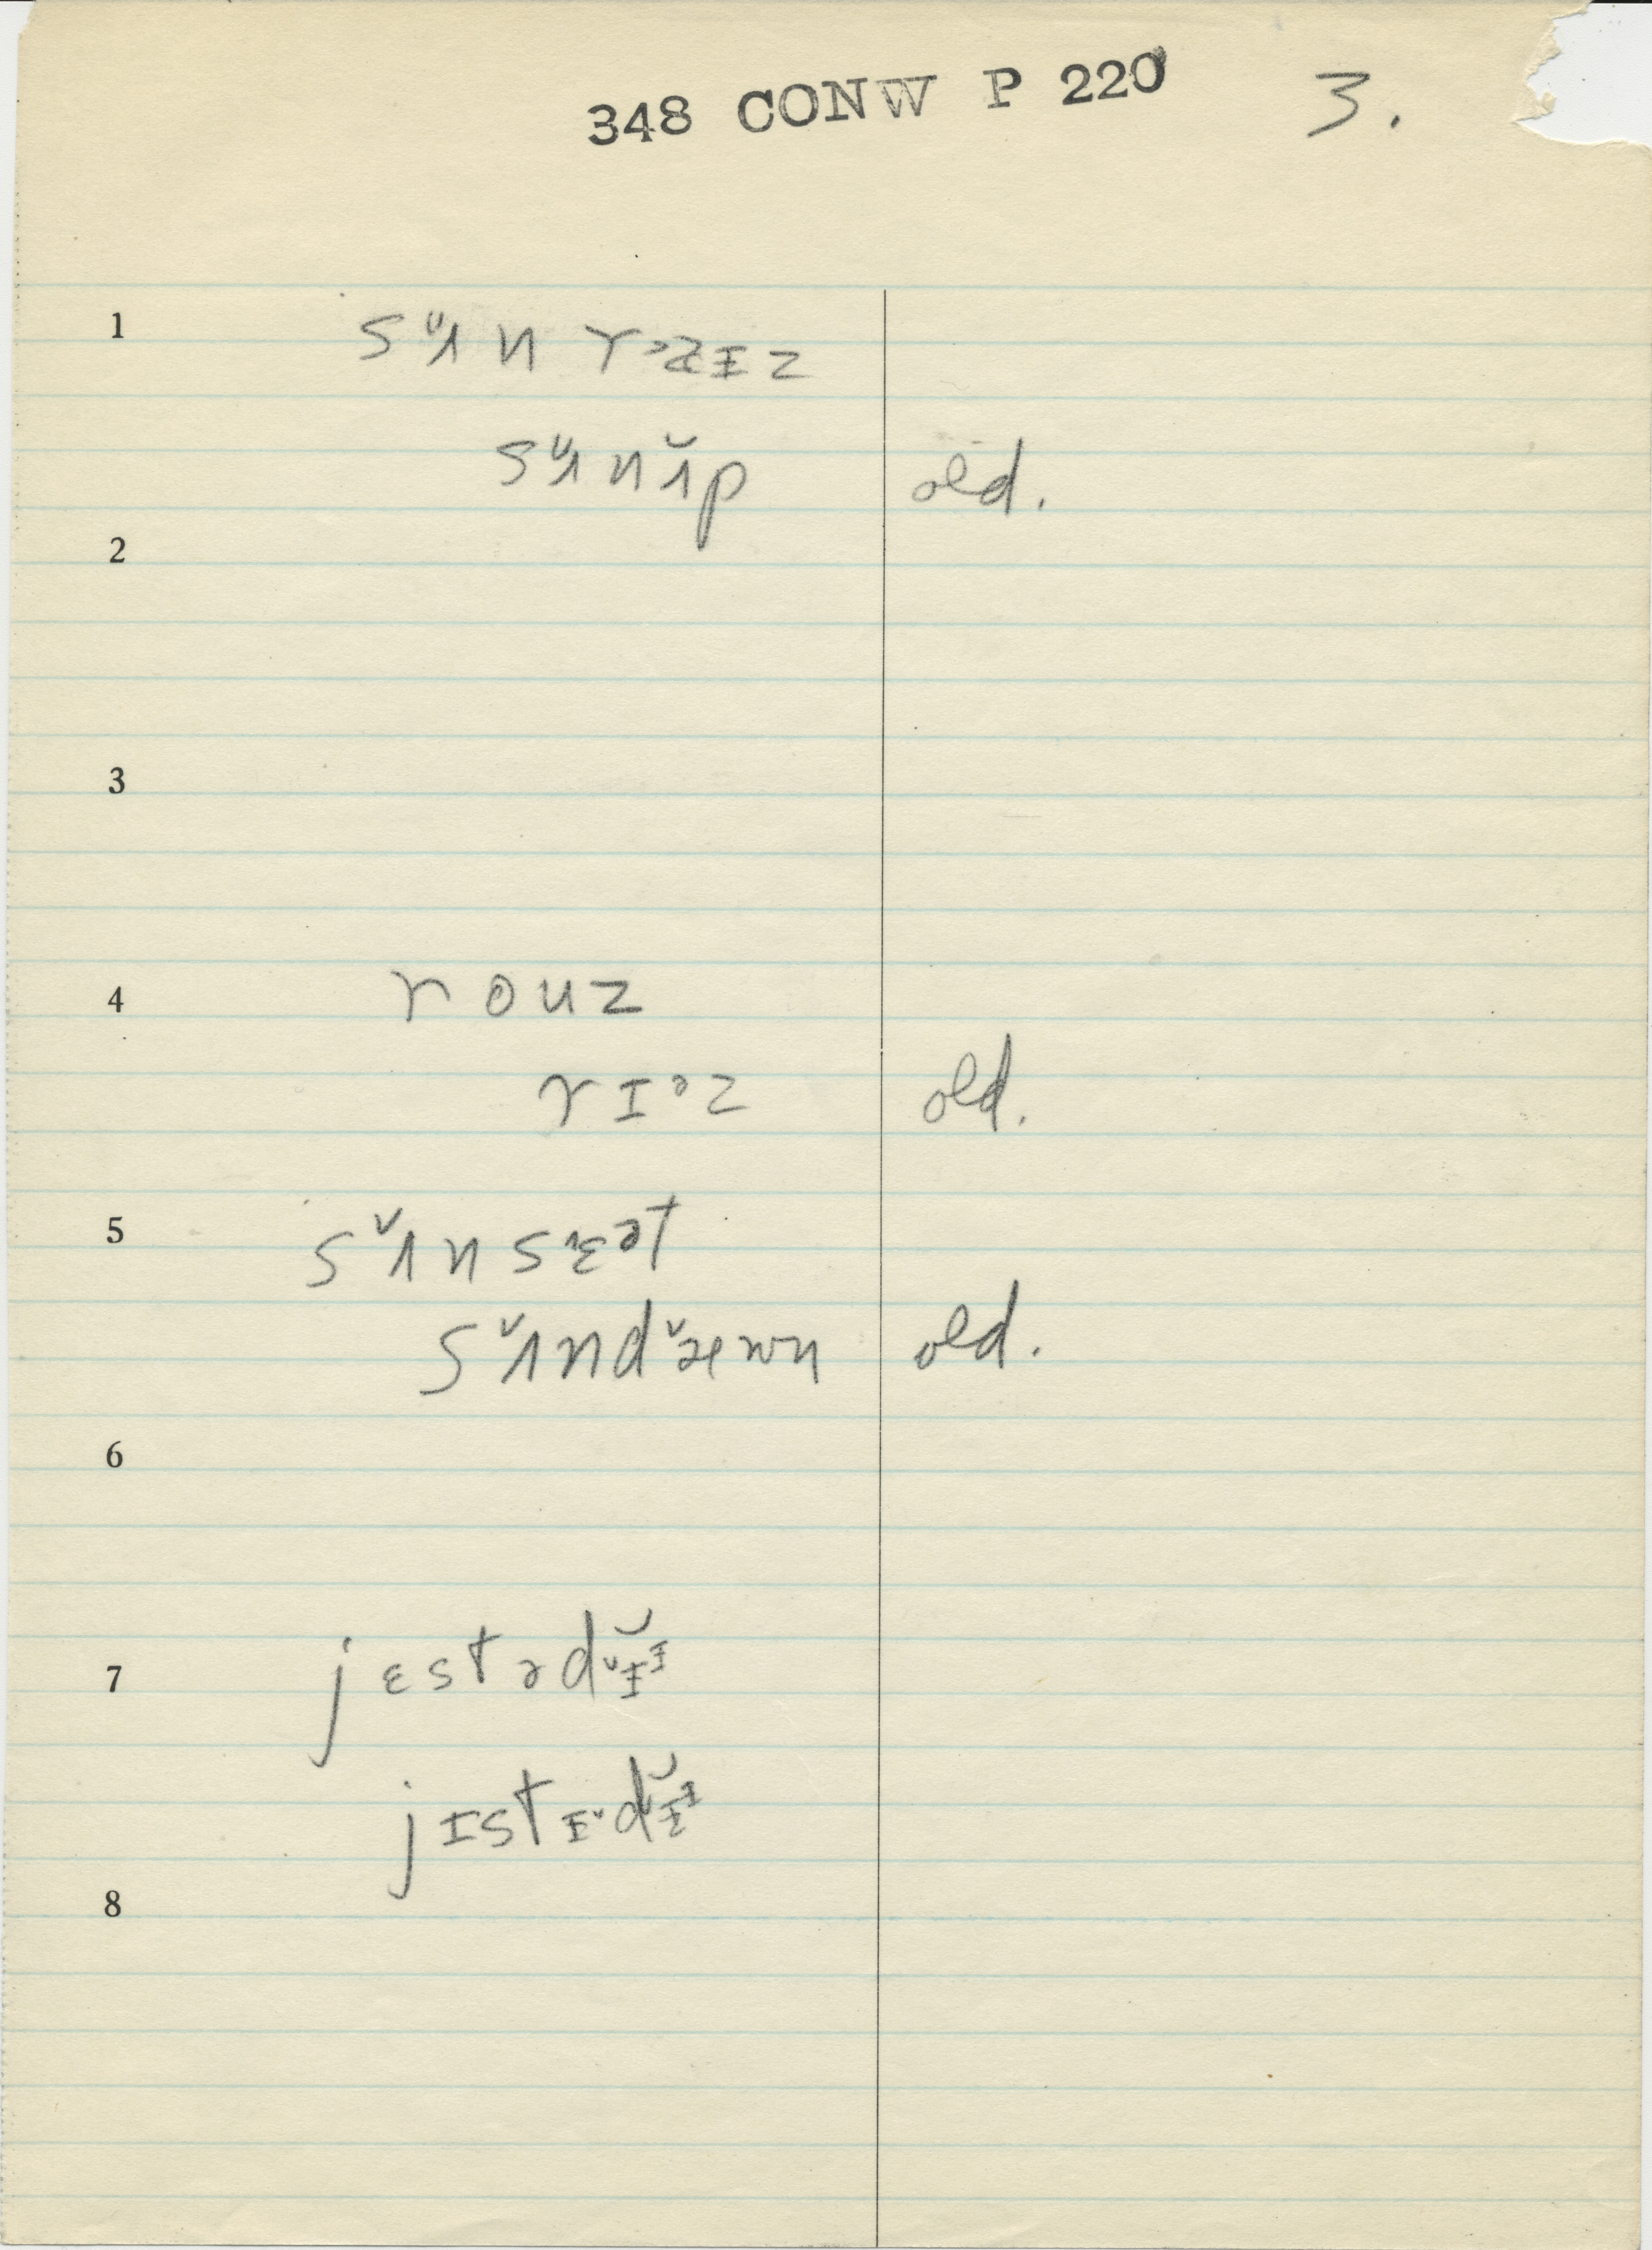 348 CONW P 220 3.
1 sʌ̌n rɑ̤ɪzɪz
sʌ̌nʌ̌p old.
2
3
4 rouz
rɪᵊz old.
5 sʌ̌nsɛ̌ᵊt
sʌ̌ndæ̌wn old.
6
7 jɛstɚdɪ̌ᶦ
jɪstɪ̌dɪ̌ᶦ
8